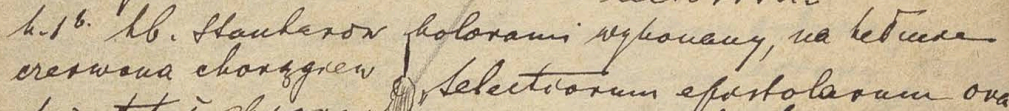 k. 1b. hb. Standarow kolorami wykonany, na hełmie
czerwona chorągiew
Selectiorum epistolarum ora